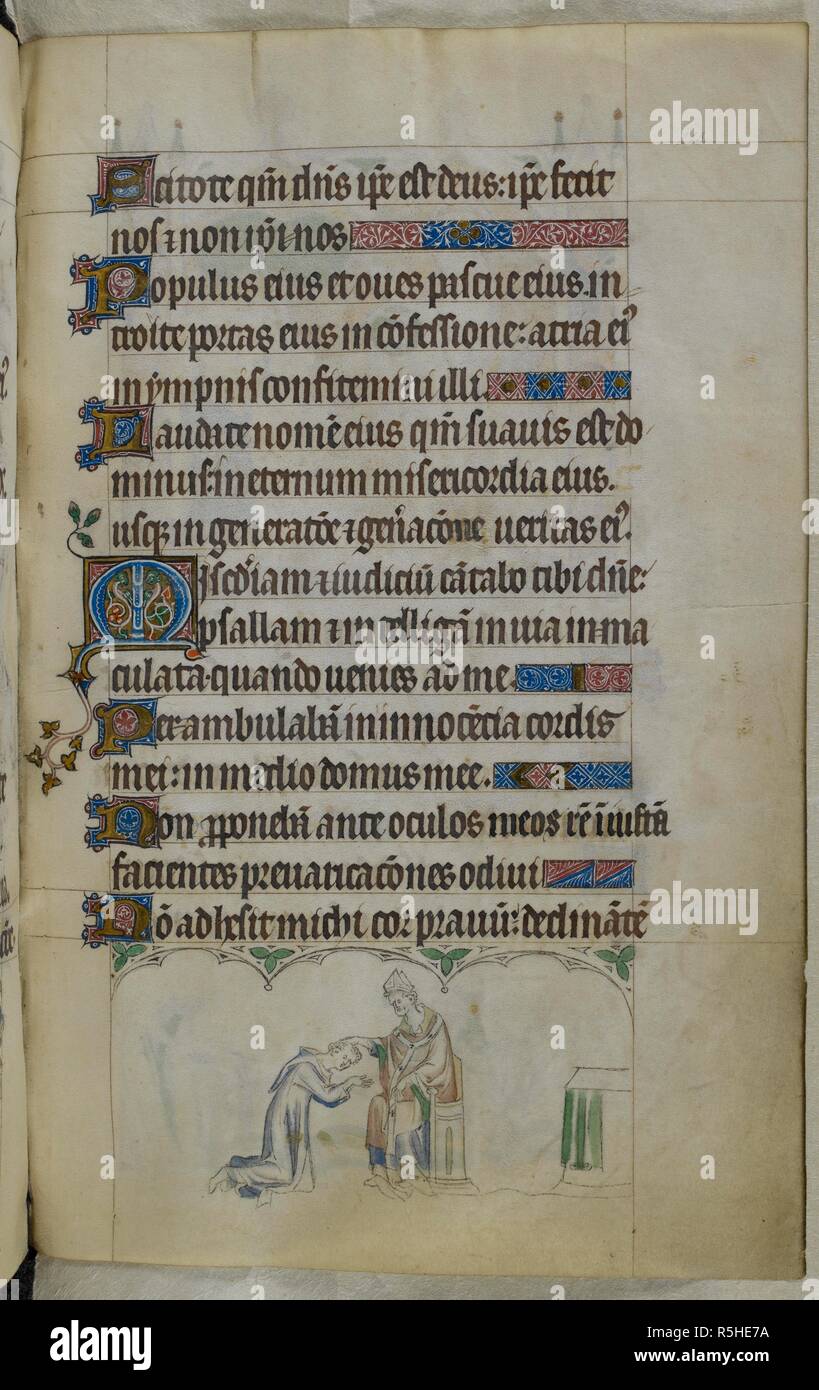 Scitote qm̄ dn̄s ip̄e est deus: ip̄e fecit
nos ⁊ non ip̄i nos
Populus eius et oues pascue eius. in
troite portas eius in cōfessione: atria ei᾿
in ympnis confitemini illi.
Laudate nomē eius qm̄ suauis est do
minus: in eternum misericordia eius.
usq; in generatōe ⁊ gen̄acōne ueritas ei᾿.
Misc̄diam ⁊ iudiciū cātabo tibi dn̄e:
psallam ⁊ intelligā in uia inma
culata. quando uenies ad me.
Perambulabā in innocētia cordis
mei: in medio domus mee.
Non ꝓponebā ante oculos meos rē iniustā
facientes preuaricacōnes odiui
Nō adhesit michi cor prauū: declinātē
alamy
alamy
a
a
alamy
Image ID: R5HE7A
www.alamy.com